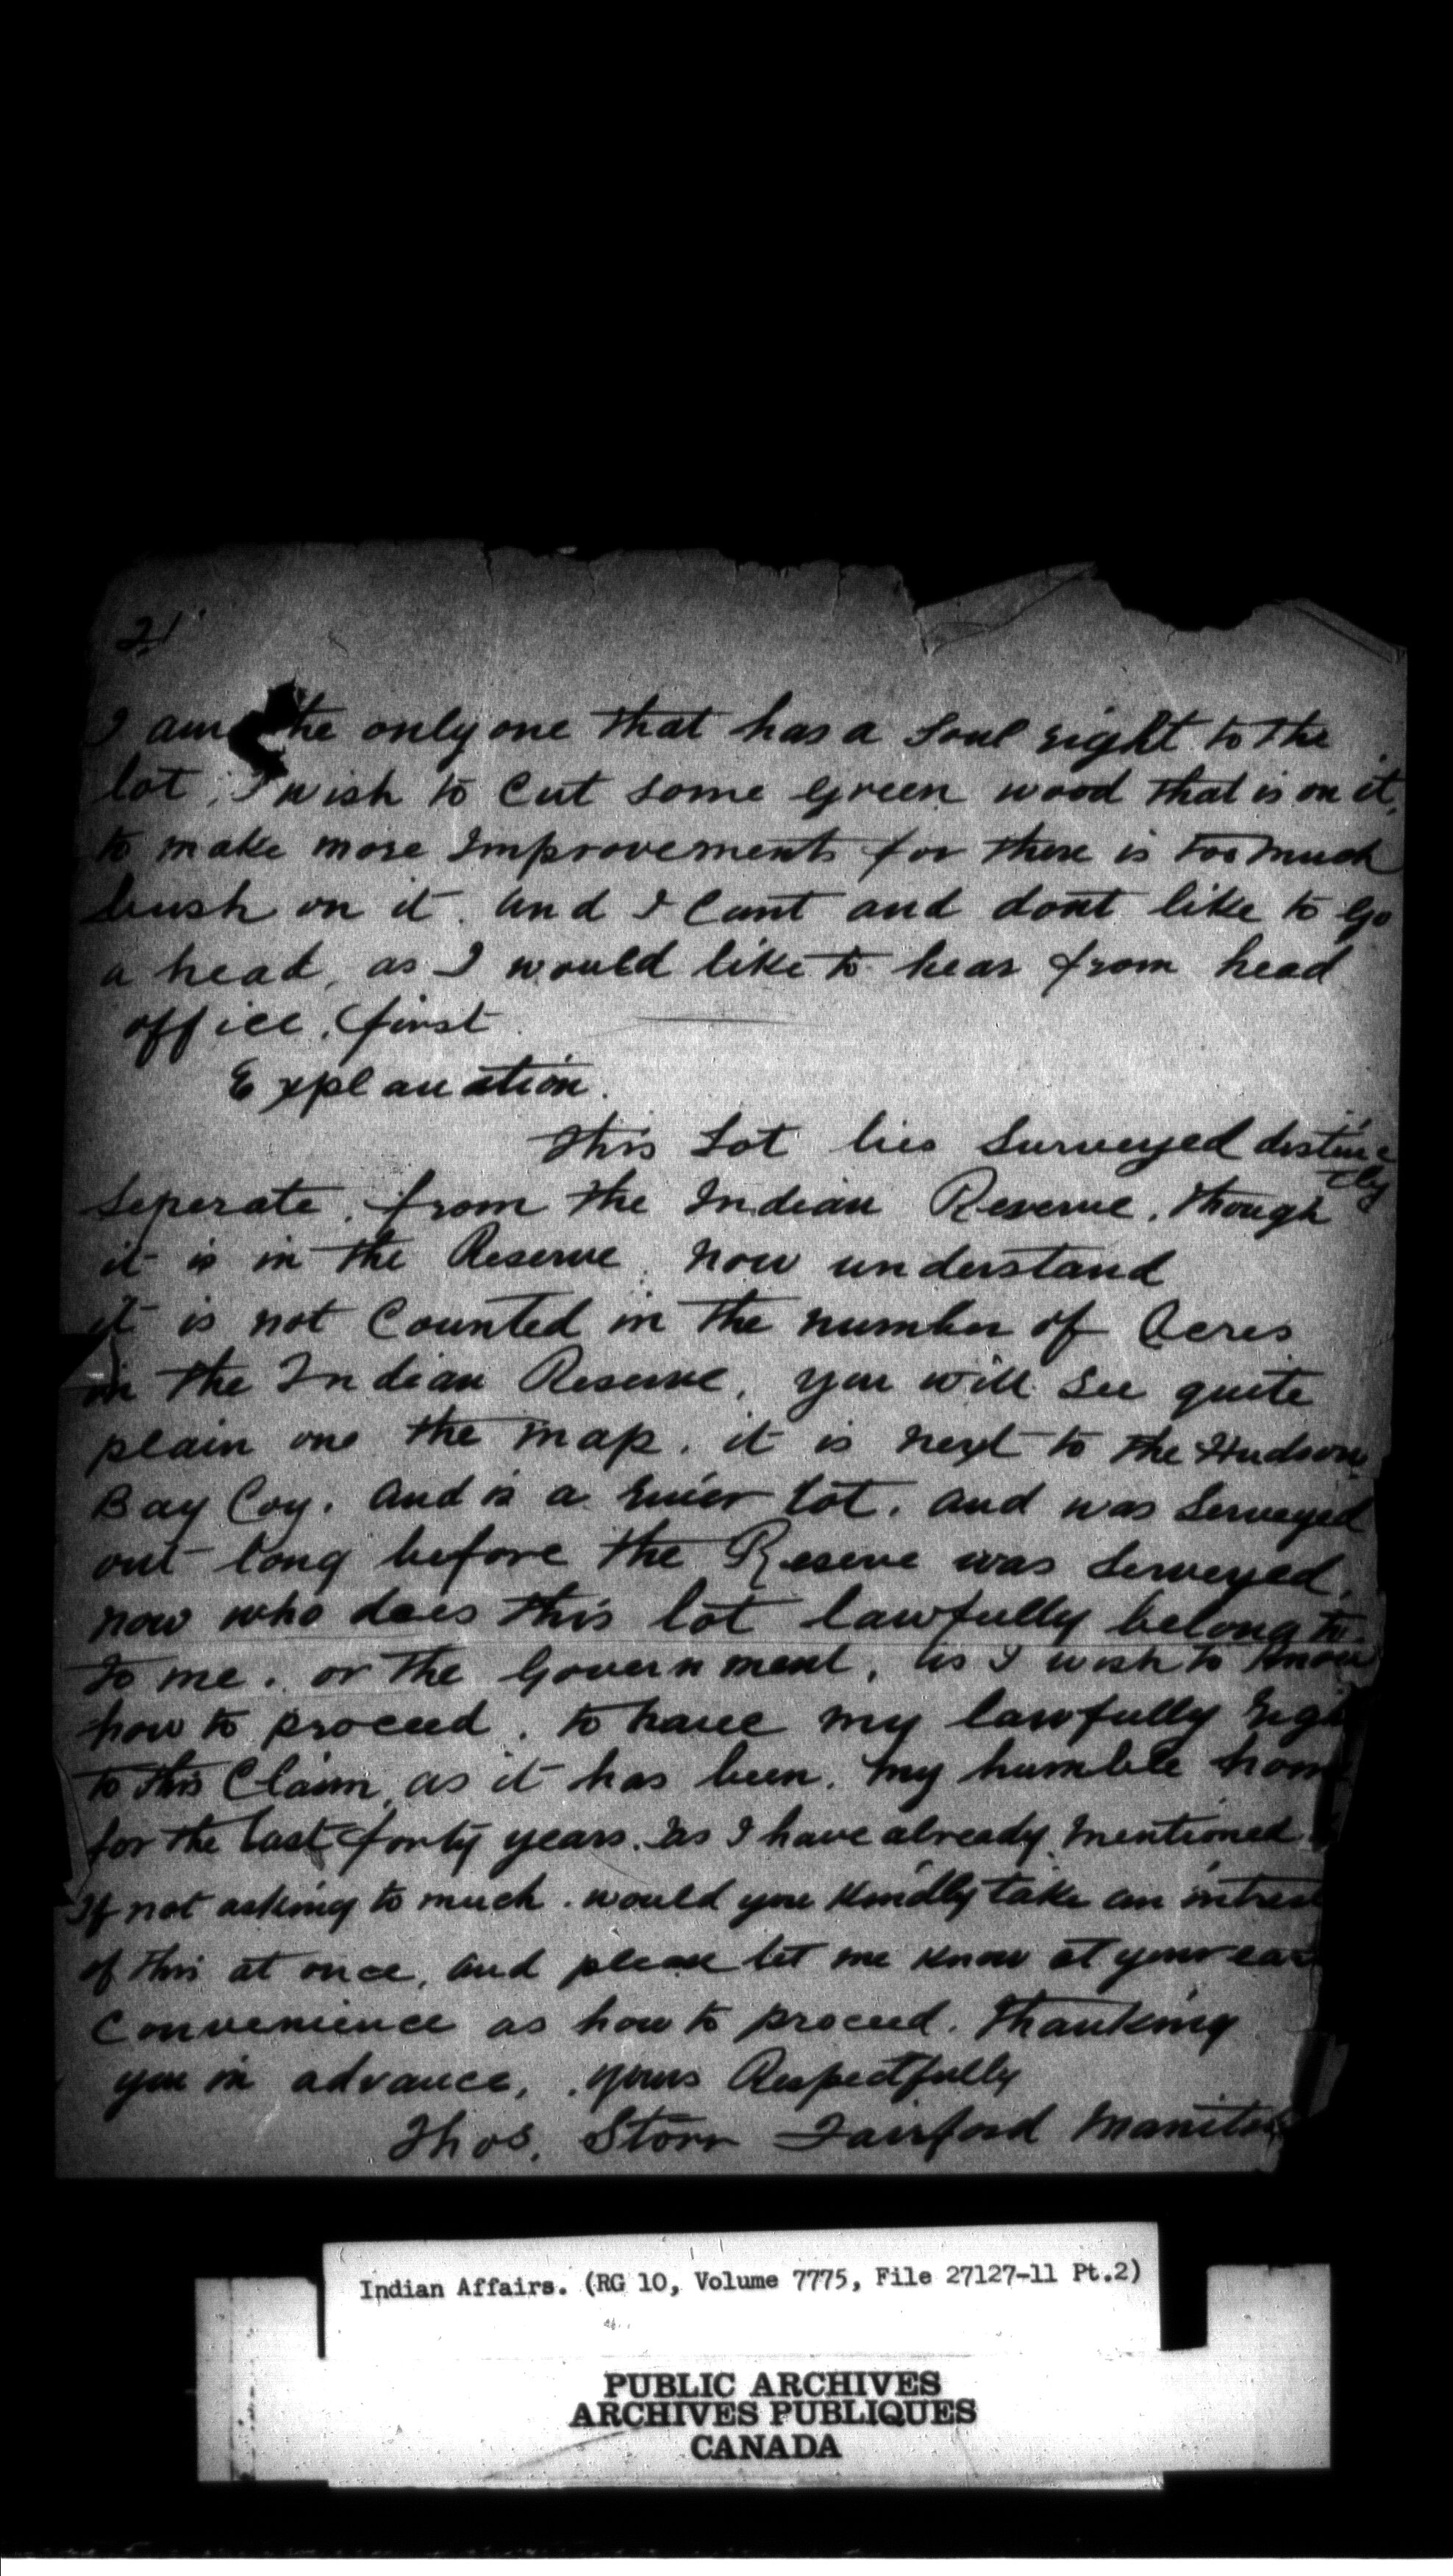 2/
I am the only one that has a soul right to the
lot, I wish to cut some green wood that is on it,
to make more Improvements for there is too much
bush on it. and I cant and dont like to go
a head, as I would like to hear from head
office, first
Explanation.
This Lot lies Surveyed distinc
tly
seperate, from the Indian Reserve, though
it is in the Reserve. now understand
it is not Counted in the number of Acres
in the Indian Reserve, you will see quite
plain one the map. it is next to the Hudson
Bay Coy. and is a River lot. and was Serveyed
out long before the Reserve was Serveyed,
now who does this lot lawfully belong to.
to me. or the Government, as I wish to know
how to proceed, to have my lawfully Righ
to this Claim, as it has been, my humble hom
for the last forty years. as I have already mentioned
If not asking to much. would you kindly take an intres
of this at once, and please let me know at your ear
Convenience as how to proceed. Thanking
you in advance, yours Respectfully
Thos. Storr Fairford Manitob
Indian Affairs. (RG 10, Volume 7775, File 27127-11 Pt.2)
PUBLIC ARCHIVES
ARCHIVES PUBLIQUES
CANADA